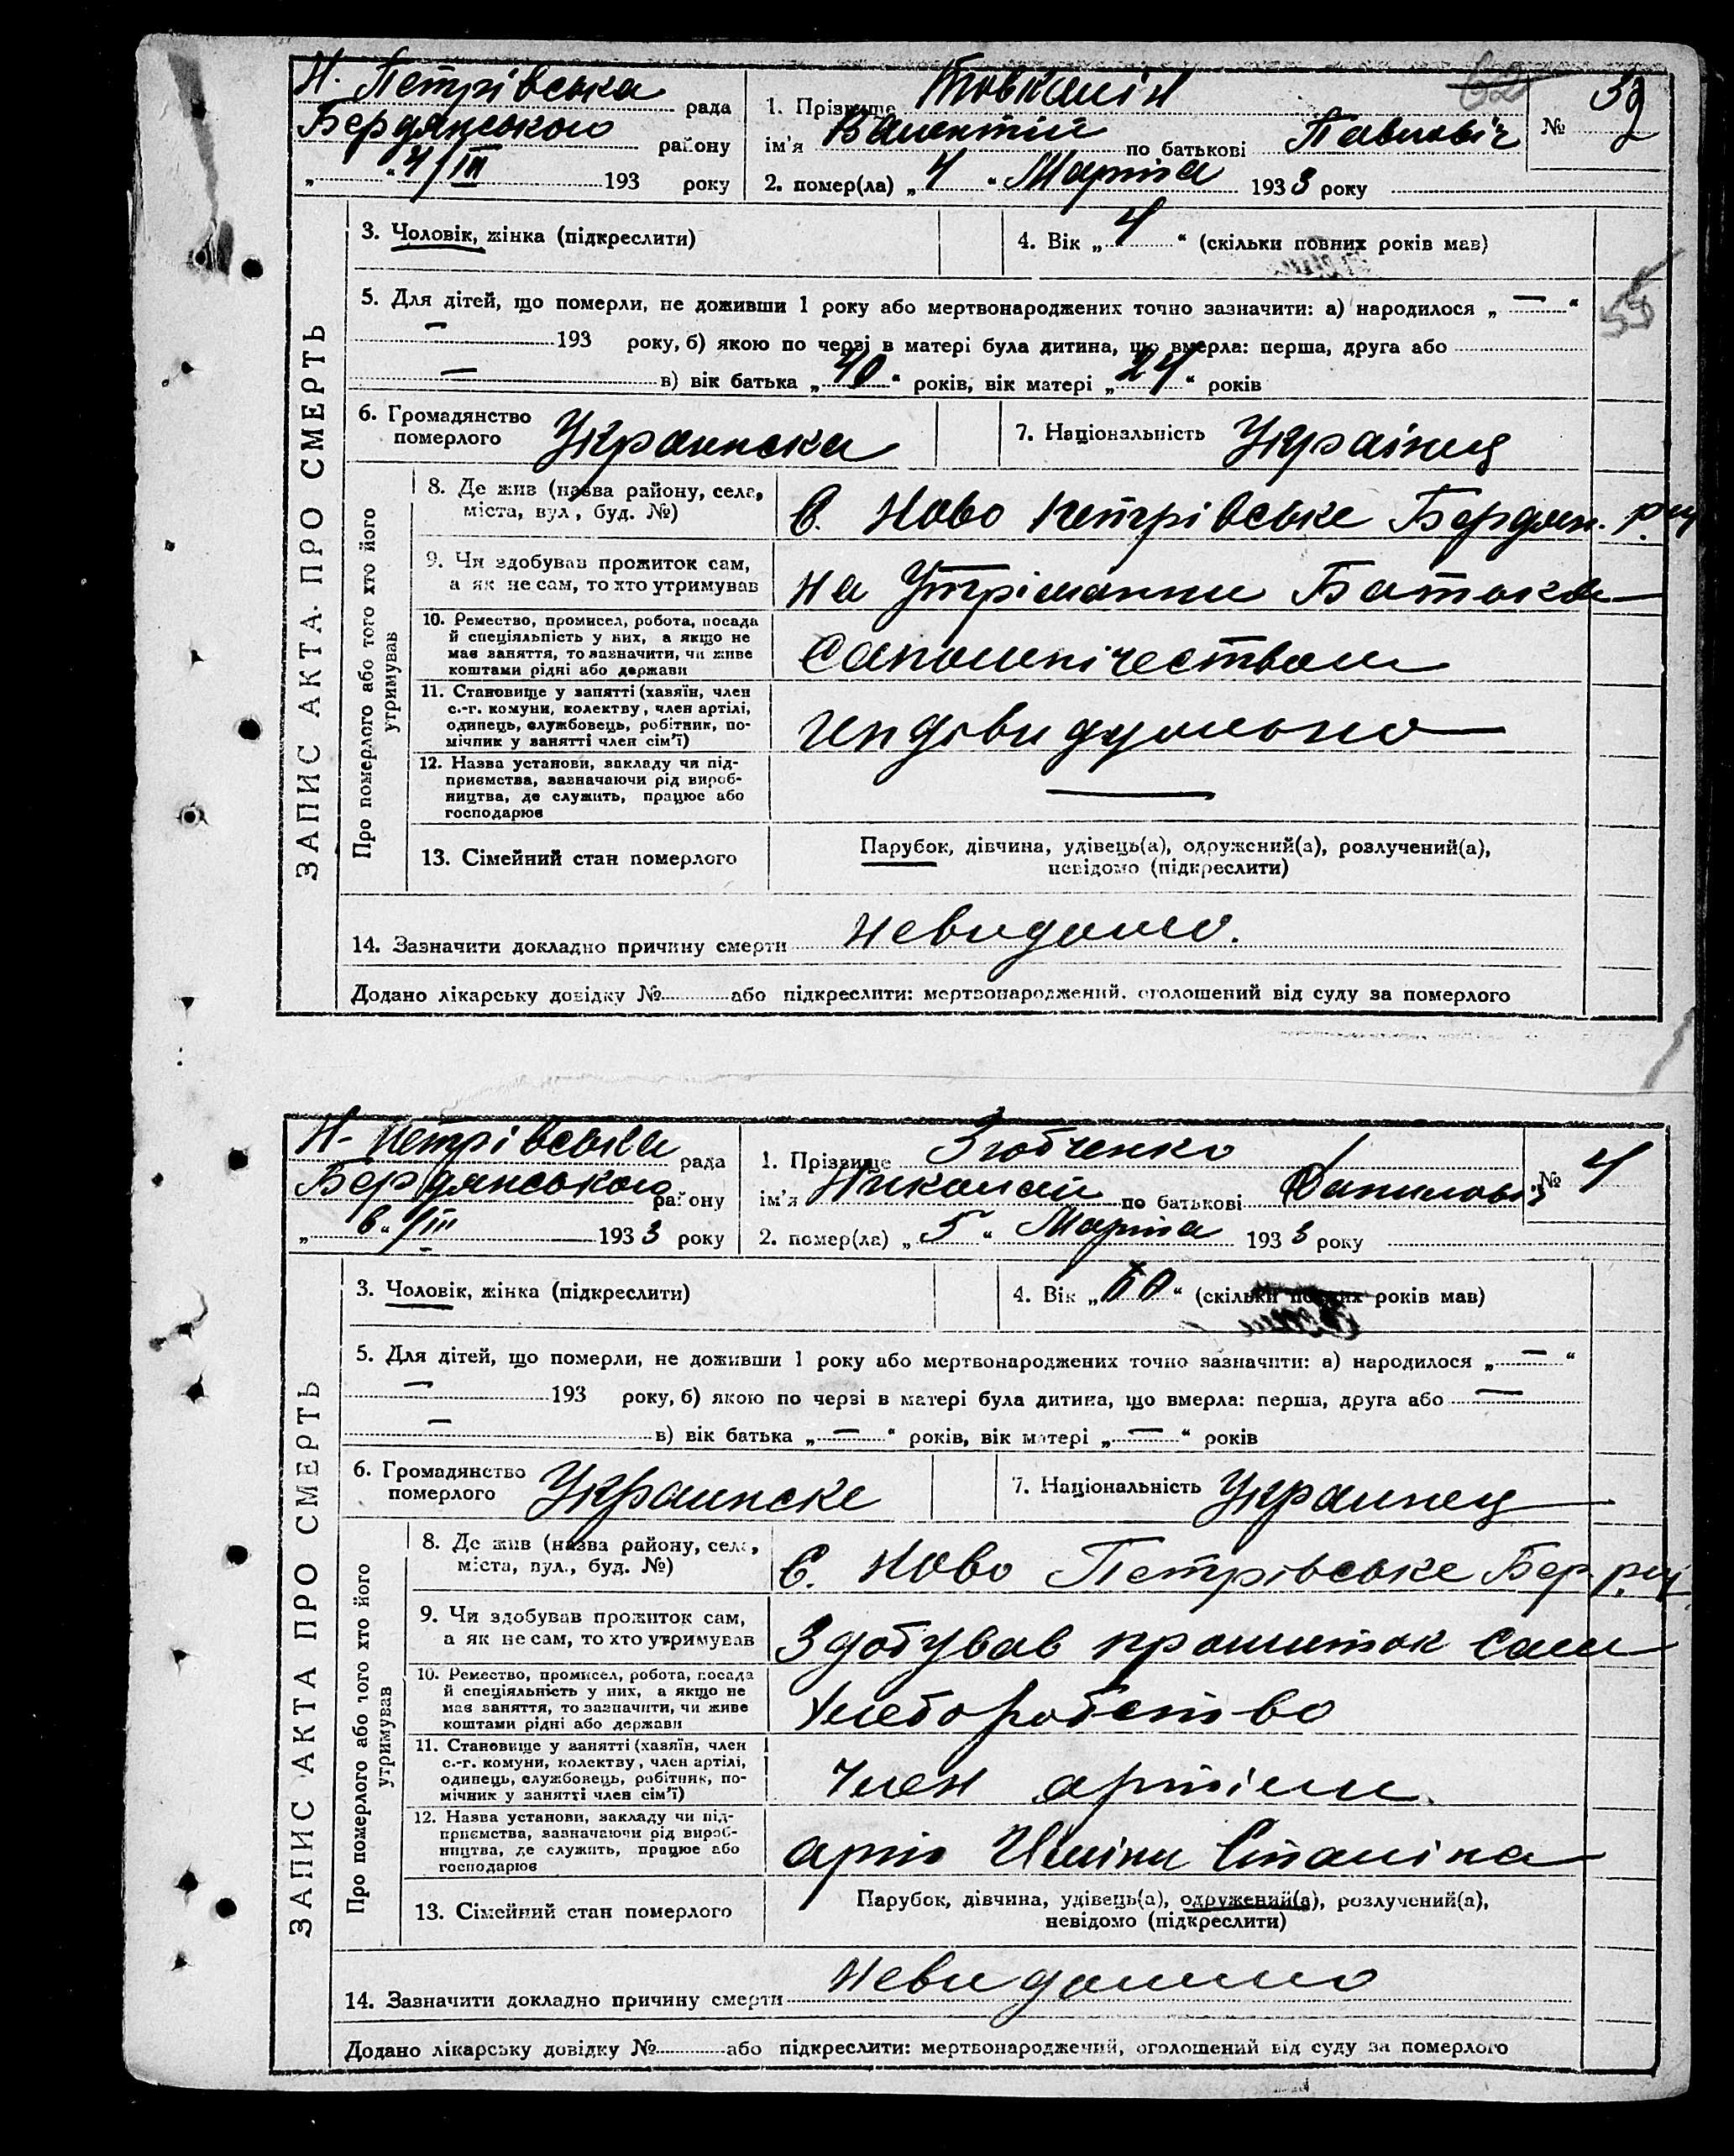 Н. Петрівська рада
Бердянського району
„ “ 4/III 193 року
1. Прізвище Товкалін
ім'я Валентій по батькові Павловіч
2. помер(ла) „ 4 “ Марта 1933 року
№ 3
ЗАПИС АКТА ПРО СМЕРТЬ
3. Чоловік, жінка (підкреслити)
4. Вік „ 4 “ (скільки повних років мав)
55
5. Для дітей, що померли, не доживши 1 року або мертвонароджених точно зазначити: а) народилося „ — “
— 193 року, б) якою по черзі в матері була дитина, що вмерла: перша, друга або
— в) вік батька „ 40 “ років, вік матері „ 24 “ років
6. Громадянство
померлого Украинска
7. Національність Украінец
Про померлого або того хто його
утримував
8. Де жив (назва району, села,
міста, вул., буд. №)
С. Ново Петрівське Бердян. р-ну
9. Чи здобував прожиток сам,
а як не сам, то хто утримував
на Утріманни Батька
10. Ремество, промисел, робота, посада
й спеціяльність у них, а якщо не
має заняття, то зазначити, чи живе
коштами рідні або держави
11. Становище у занятті (хазяїн, член
с.-г. комуни, колектву, член артілі,
одинець, службовець, робітник, по-
мічник у занятті член сім'ї)
индовидуально
12. Назва установи, закладу чи під-
приємства, зазначаючи рід вироб-
ництва, де служить, працює або
господарює
—
13. Сімейний стан померлого
Парубок, дівчина, удівець(а), одружений(а), розлучений(а),
невідомо (підкреслити)
14. Зазначити докладно причину смерти невидомо.
Додано лікарську довідку № або підкреслити: мертвонароджений, оголошений від суду за померлого
Н- Петрівська рада
Бердянського району
„ 6 “ /III 1933 року
1. Прізвище Злобченко
ім'я Николай по батькові Даниловіч
2. помер(ла) „ 5 “ Марта 1933 року
№ 4
ЗАПИС АКТА ПРО СМЕРТЬ
3. Чоловік, жінка (підкреслити)
4. Вік „ 60 “ (скільки повних років мав)
5. Для дітей, що померли, не доживши 1 року або мертвонароджених точно зазначити: а) народилося „ — “
— 193 року, б) якою по черзі в матері була дитина, що вмерла: перша, друга або —
— в) вік батька „ — “ років, вік матері „ — “ років
6. Громадянство
померлого Украинске
7. Національність Украинец
Про померлого або того хто його
утримував
8. Де жив (назва району, села,
міста, вул., буд. №)
С. Ново Петрівське Бер р-ну
9. Чи здобував прожиток сам,
а як не сам, то хто утримував
Здобував прожиток сам
10. Ремество, промисел, робота, посада
й спеціяльність у них, а якщо не
має заняття, то зазначити, чи живе
коштами рідні або держави
хлеборобство
11. Становище у занятті (хазяїн, член
с.-г. комуни, колектву, член артілі,
одинець, службовець, робітник, по-
мічник у занятті член сім'ї)
Член артіли.
12. Назва установи, закладу чи під-
приємства, зазначаючи рід вироб-
ництва, де служить, працює або
господарює
арт Иміни Сталіна
13. Сімейний стан померлого
Парубок, дівчина, удівець(а), одружений(а), розлучений(а),
невідомо (підкреслити)
14. Зазначити докладно причину смерти невидомо
Додано лікарську довідку № або підкреслити: мертвонароджений, оголошений від суду за померлого